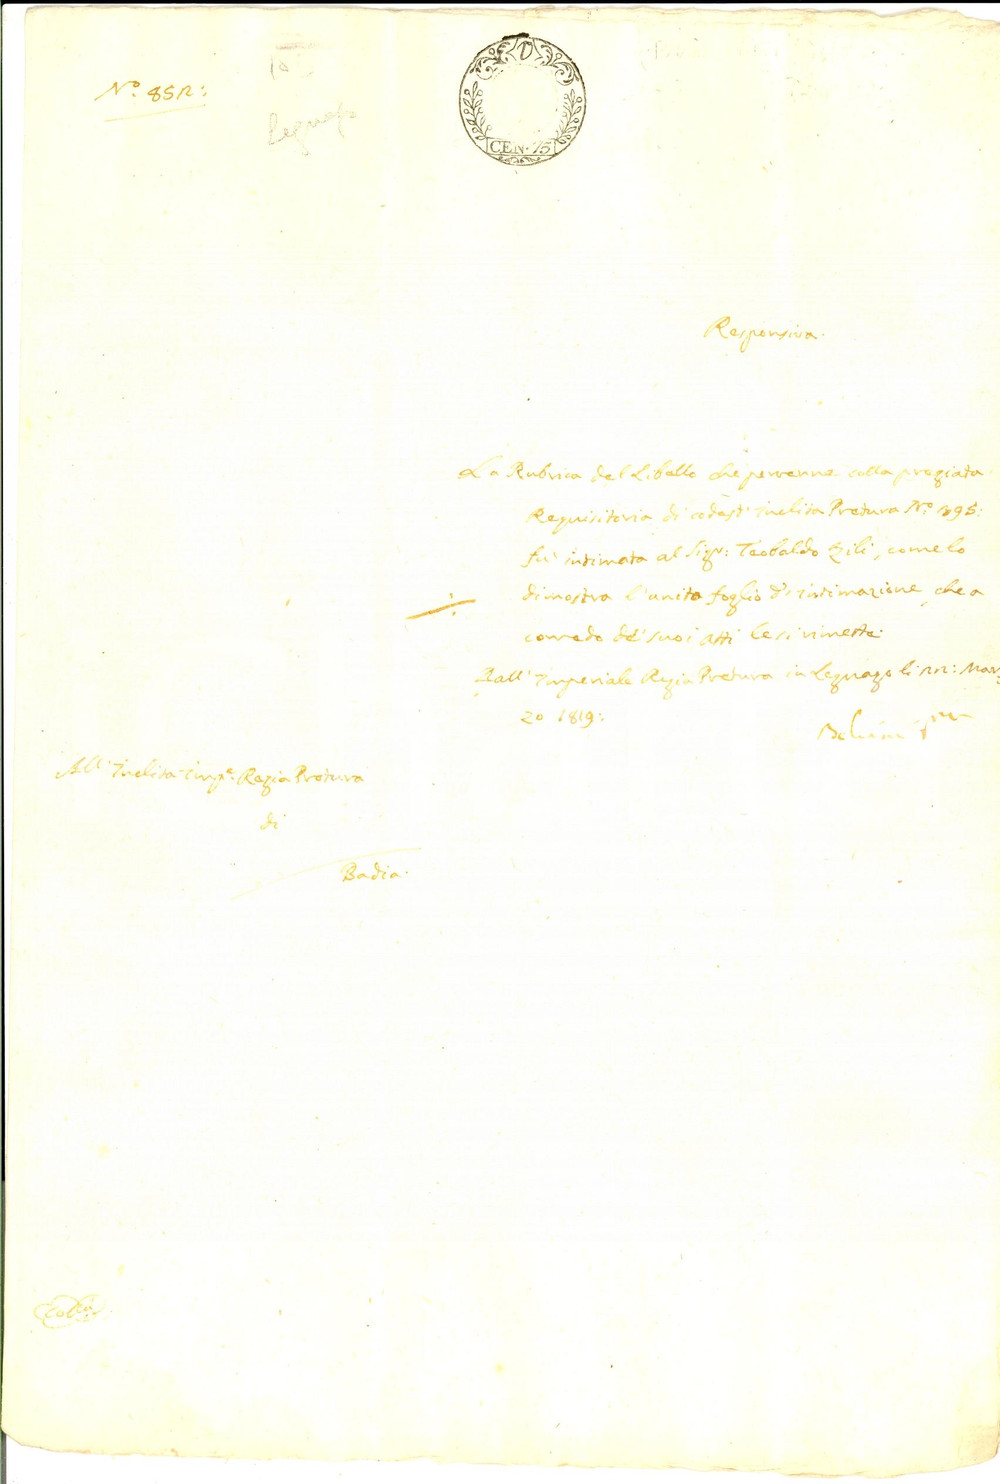 N.º 852:
Legnago
CEN. 75
Responsiva.
La Rubrica del Libello che pervenne colla pregiata
Requisitoria di codest' Inclita Pretura N.º 395:
fu intimata al Sigr: Teobaldo Zili, come lo
dimostra l'unito foglio d'intimazione, che a
corredo de' suoi atti le si rimette.
Dall' Imperiale Regia Pretura in Legnago li 22: Mar
zo 1819:
All' Inclita Imp.e Regia Pretura
di
Badia.
Coll.a